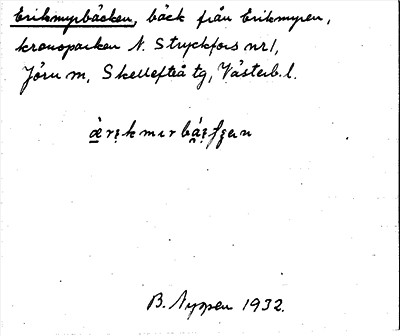 Erikmyrbäcken, bäck från Erikmyren,
kronoparken N. Stryckfors nr 1,
Jörn m, Skellefteå tg, Västerb. l.
B. Nyman 1932.